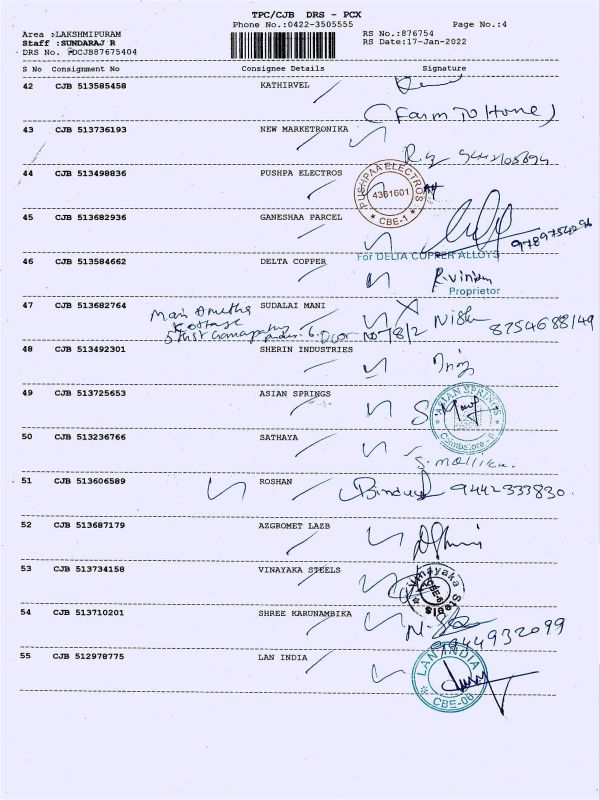 TPC/CJB DRS - PCX
Phone No.:0422-3505555 Page No.:4
Area :LAKSHMIPURAM RS No.:876754
Staff :SUNDARAJ R RS Date:17-Jan-2022
DRS No. PDCJB87675404
S No Consignment No Consignee Details Signature
42 CJB 513585458 KATHIRVEL
(Farm To Home)
43 CJB 513736193 NEW MARKETRONIKA
44 CJB 513498836 PUSHPA ELECTROS
PUSHPAA ELECTROS
4361601
* CBE-1 *
45 CJB 513682936 GANESHAA PARCEL
For DELTA COPPER ALLOYS
46 CJB 513584662 DELTA COPPER
Proprietor
47 CJB 513682764 SUDALAI MANI
8254688149
Door No 78/2
48 CJB 513492301 SHERIN INDUSTRIES
49 CJB 513725653 ASIAN SPRINGS
ASIAN SPRINGS
50 CJB 513236766 SATHAYA
S. mallika.
51 CJB 513606589 ROSHAN 9442333830
52 CJB 513687179 AZGROMET LAZB
53 CJB 513734158 VINAYAKA STEELS
Vinayaka Steels
54 CJB 513710201 SHREE KARUNAMBIKA
9944932099
55 CJB 512978775 LAN INDIA
LAN INDIA